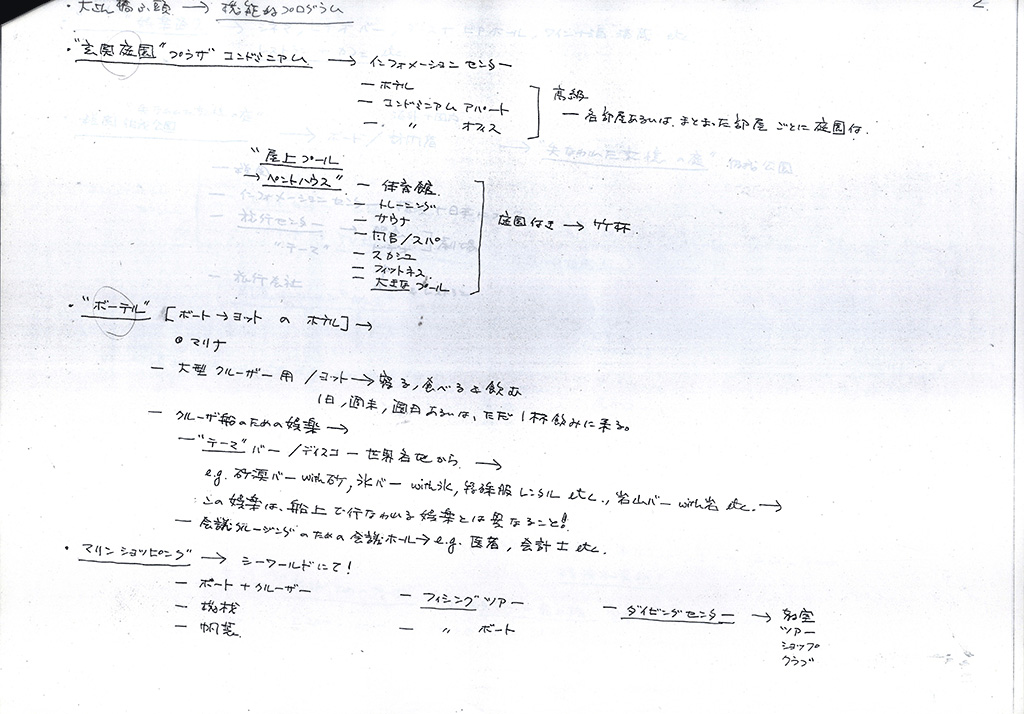 2.
・大さん橋ふ頭 → 機能的プログラム
・"玄関庭園" プラザ コンドミニアム → インフォメーション センター
— ホテル
— コンドミニアム アパート
— 〃 〃 オフィス
高級
— 各部屋あるいは、まとまった部屋ごとに庭園付.
"屋上プール
→ ペントハウス" — 体育館.
— トレーニング
— サウナ
— 風呂/スパ
— スカッシュ
— フィットネス.
— 大きなプール
庭園付き → 竹林.
・"ボーテル" [ボート→ヨット の ホテル] →
マリナ
— 大型クルーザー用 /ヨット → 寝る, 食べる+飲む
1日, 週末, 週日あるいは、ただ1杯飲みに来る。
— クルーザ船のための娯楽 →
—"テーマ" バー /ディスコ — 世界各地から. →
e.g. 砂漠バー with砂, 氷バー with氷, レンタル etc., 岩山バー with岩 etc. →
この娯楽は、船上で行なわれる娯楽とは異なること!
— 会議クルージングのための会議ホール→ e.g. 医者, 会計士 etc.
・マリンショッピング → シーワールドにて!
— ボート+クルーザー
— 機材
— 帆装.
— フィシングツアー
— 〃 ボート
— ダイビングセンター → 教室
ツアー
ショップ
クラブ